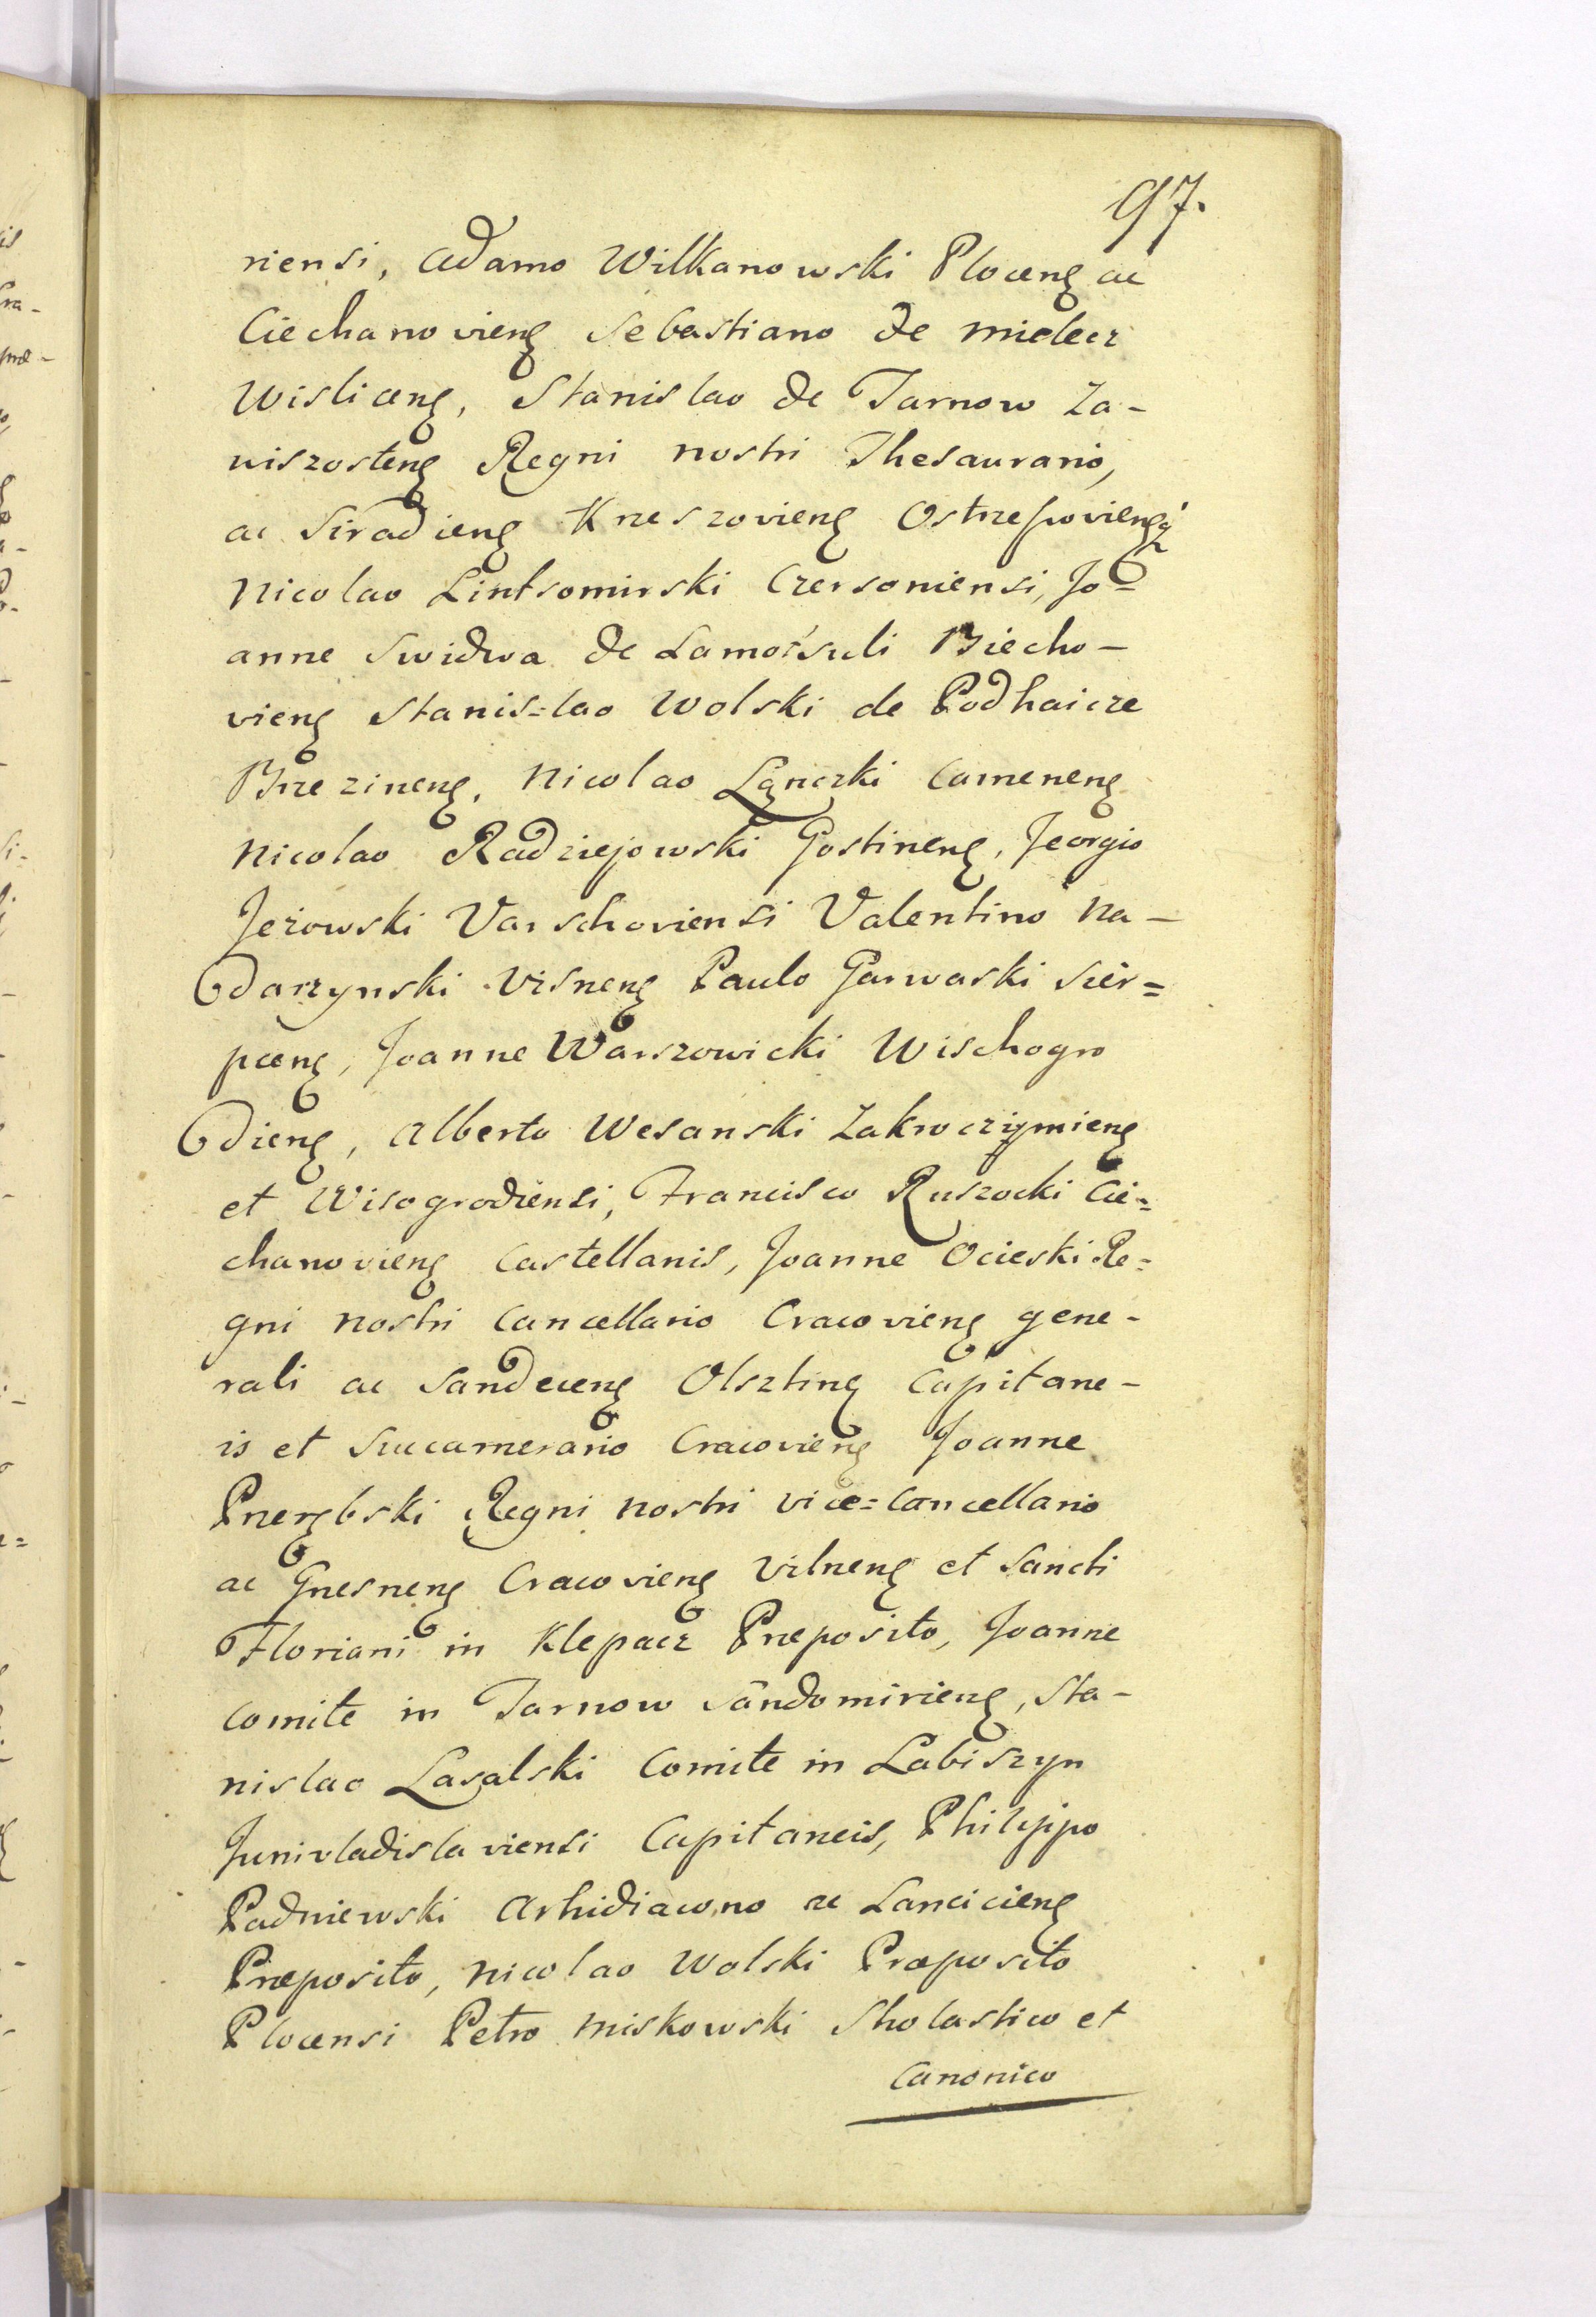 97.
riensi, Adamo Wilkanowski Ploceng ac
Ciechanovieng Sebastiano de Mielecz
Wisliceng, Stanislao de Tarnow Za-
wiszosteng Regni nostri Thesaurario,
ac Siradieng Krzeszovieng Ostrzeszovieng
Nicolao Lintsomirski Czersoniensi, Jo=
anne Swidwa de Samotsuli Biecho-
vieng Stanis=lao Wolski de Podhaicze
Brzezineng, Nicolao Lęnczki Cameneng
Nicolao Radziejowski Gostineng, Jeorgio
Jeżowski Varschoviensi Valentino Na-
darzynski Visneng Paulo Garwaski Szĕr=
pceng, Joanne Warszowicki Wischogro
dieng, Alberto Wesanski Zakroczÿmieng
et Wisogrodiensi, Francisco Ruszocki Cie=
chanovieng Castellanis, Joanne Ocieski Re=
gni nostri Cancellario Cracovieng gene-
rali ac Sandeceng Olszting Capitane-
is et Succamerario Cracovieng Joanne
Przerębski Regni nostri vice=Cancellario
ac Gnesneng Cracovieng Vilneng et Sancti
Floriani in Klepacz Præposito, Joanne
Comite in Tarnow Sandomirieng, Sta-
nislao Lasalski Comite in Labiszyn
Junivladislaviensi Capitaneis, Philippo
Padniewski Arhidiacono ac Lancicieng
Præposito, Nicolao Wolski Præposito
Plocensi Petro Miskowski Sholastico et
Canonico